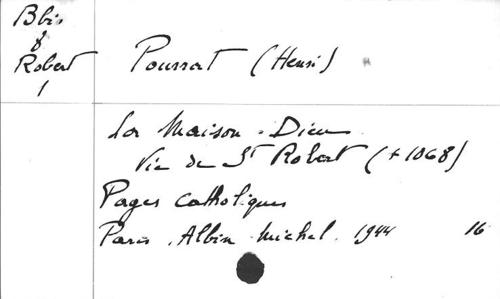 Bbis
8
Robert
1
Pourrat (Henri)
La Maison-Dieu
Vie de St Robert (+1068)
Pages catholiques
Paris, Albin Michel. 1944 16